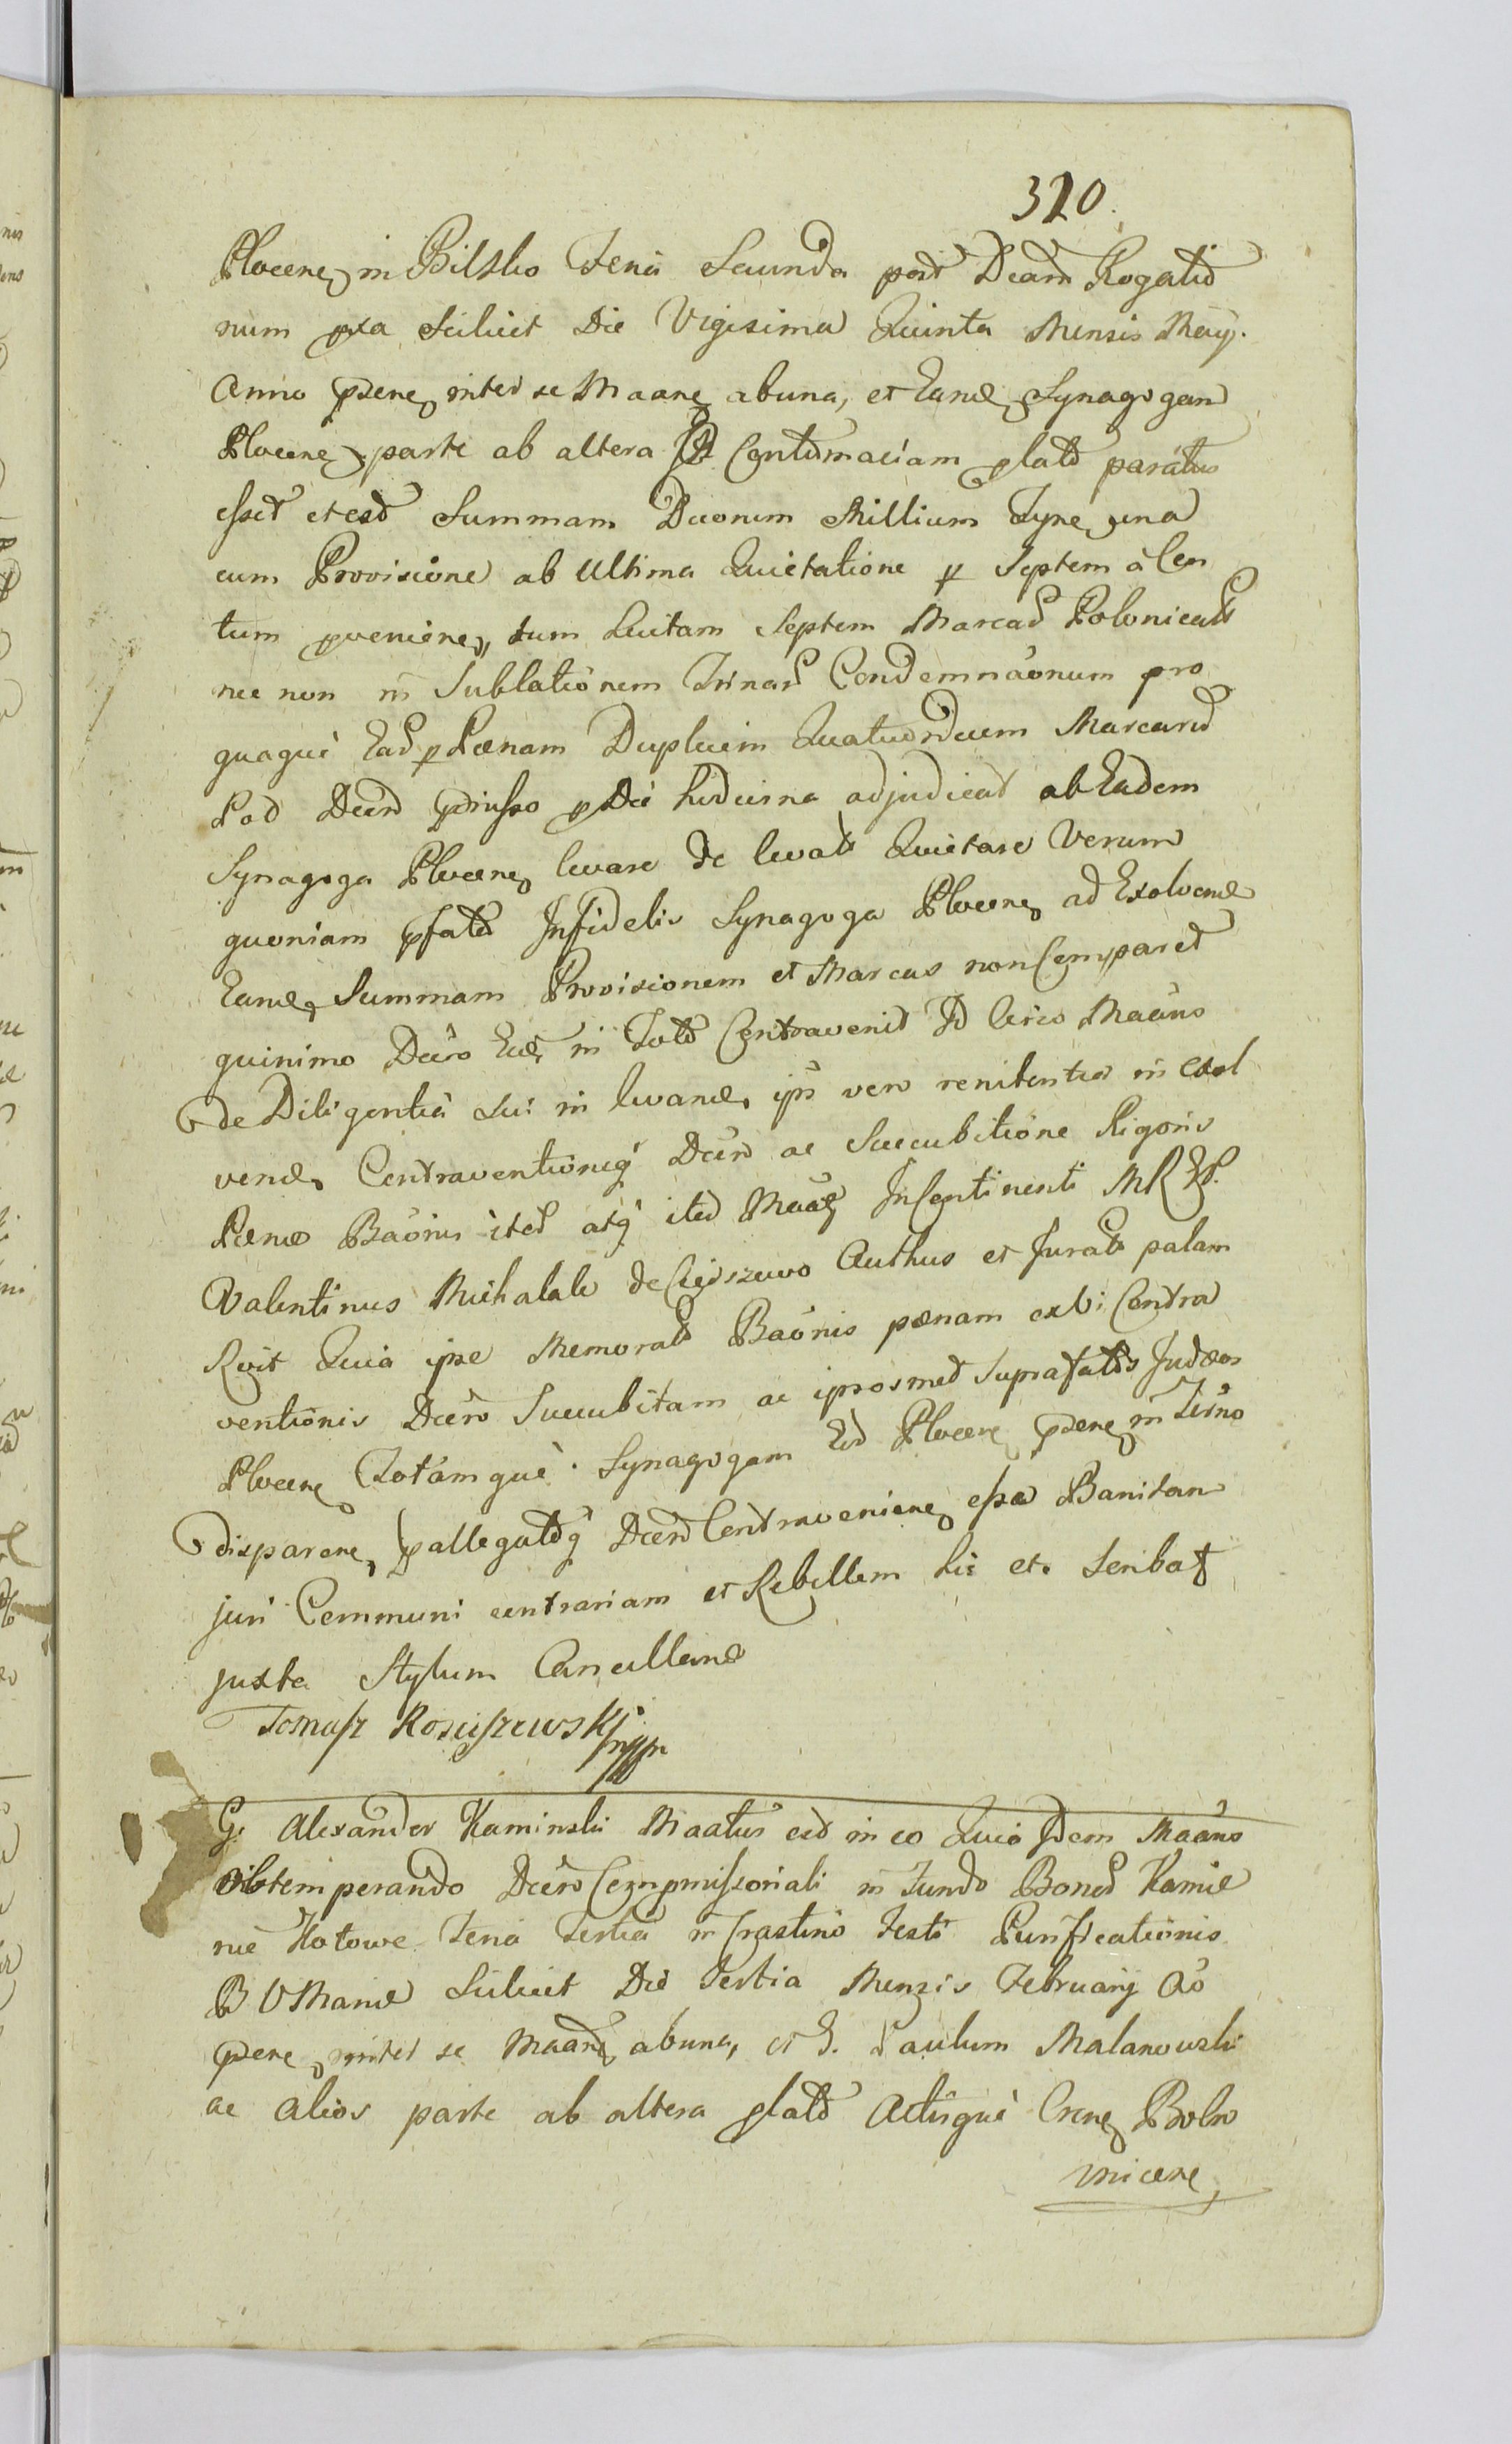 320.
Plocene in Bilsko Feria Secunda post Dcam Rogatio
num pxa Scilicet Die Vigesima Quinta Mensis May.
Anno psene inter se Maane abuna, et Eand Synagogam
Plocene parte ab altera Contumaciam plato paratus
esset et est Summam Duorum Millium Tyne una
cum Provisione ab Ultima Quietatione p Septem à Cen
tum pveniene, tum Luitam Septem Marcas Polonicals
nec non in Sublationem Trinar Condemnaonum pro
quaque Ead p Pænam Duplicim Quatuordecem Marcar
Pod Decro priusso p Die hodierna adjudicat ab Eadem
Synagoga Plocene levare de levats Quietare Verum
quoniam pfata Infidelis Synagoga Plocene ad Exolvend
Eand Summam Provisionem et Marcas non Comparet
quinimo Decro Eid in Toto Contravenit Id circo Maans
de Diligentia Sui in levand, ips vero renitentia in exol
vend Contraventioneq Decro ac Succubitione Rigoris
Pænæ Baonis iter atq iter Maae In Continenti MRP.
Valentinus Michalak de Ciesszewo Authus et Jurats palam
Rvit Quia ipse Memorats Baonis pænam ex Vi Contra
ventionis Decro Succubitam ac ipsosmet Suprafatos Judæos
Plocene Totamque Synagogam Eid Plocene psene in Termo
disparene, pallegatoq Decro Contraveniene esse Banitam
juri Communi contrariam et Rebellem hic etc Scribat
juxta Stylum Cancellariæ
Tomasz Kosciszewski
G. Alexander Kaminski Maatus eid in eo Quia Idem Maans
obtemperando Decro Compmissoriali in Fundo Bonor Kamie
nie Kotowe Feria Tertia in Crastino Festi Purificationis
B V Mariæ Scilicet Die Tertia Mensis February Ao
psene inter se Maane abuna, et G. Paulum Malanowski
ac alios parte ab altera plato Actisque Crene Bobro
vnicene